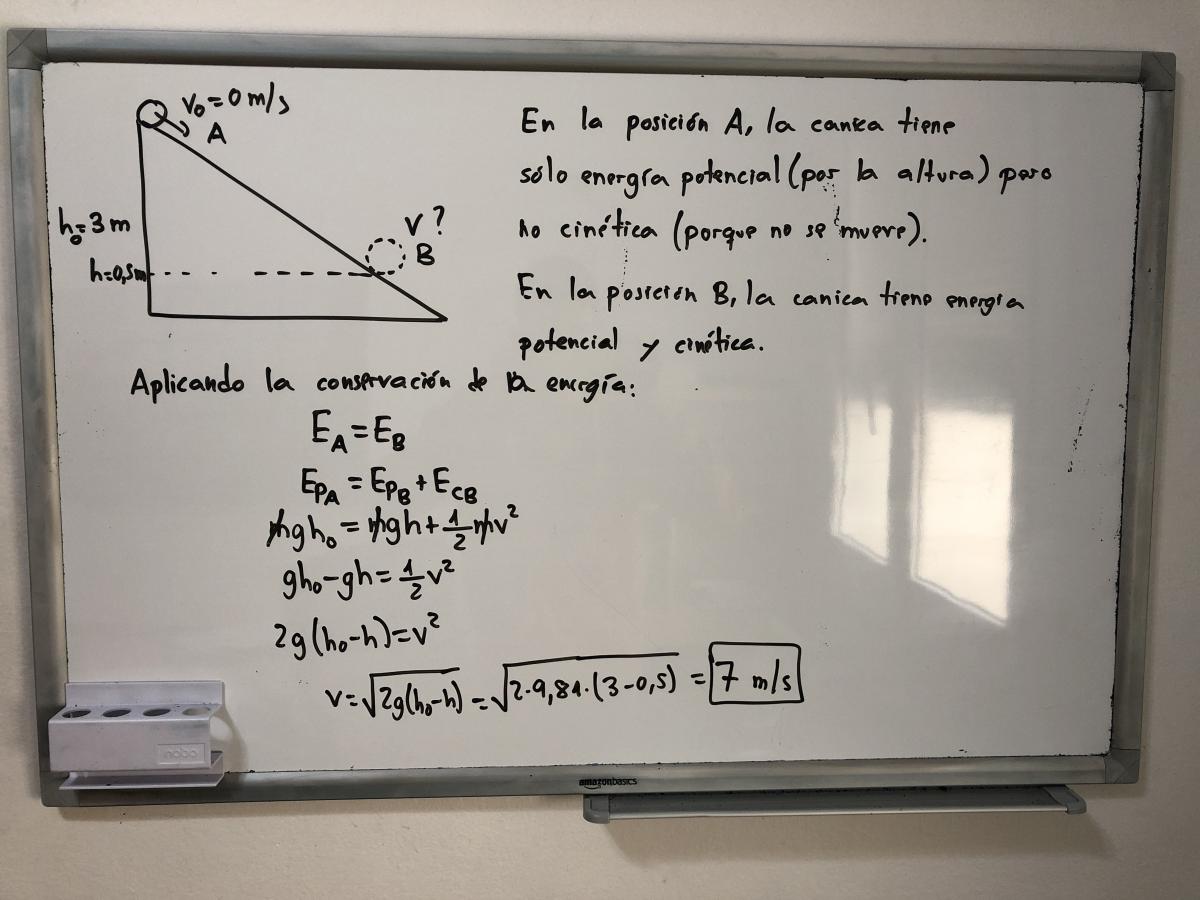 v₀=0 m/s
A
h₀=3 m
h=0,5m
v?
B
En la posición A, la canica tiene
sólo energía potencial (por la altura) pero
no cinética (porque no se mueve).
En la posición B, la canica tiene energía
potencial y cinética.
Aplicando la conservación de la energía:
E_A=E_B
E_PA=E_PB+E_CB
mgh₀=mgh+1/2mv²
gh₀-gh=1/2v²
2g(h₀-h)=v²
v=√2g(h₀-h)=√2·9,81·(3-0,5)=7 m/s
nobo
amazonbasics